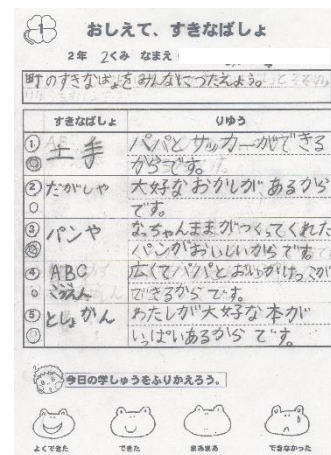 1
おしえて、すきなばしょ
2年 2くみ なまえ
町のすきなばしょをみんなにつたえよう。
すきなばしょ りゆう
① 土手 パパとサッカーができる
からです。
② だがしや 大好なおかしがあるから
です。
③ パンや なっちゃんままがつくってくれた
パンがおいしいからです。
④ ABC 広くてパパとおいかけっこが
こうえん できるからです。
⑤ としょかん わたしが大好な本が
いっぱいあるからです。
今日の学しゅうをふりかえろう。
よくできた できた まあまあ できなかった